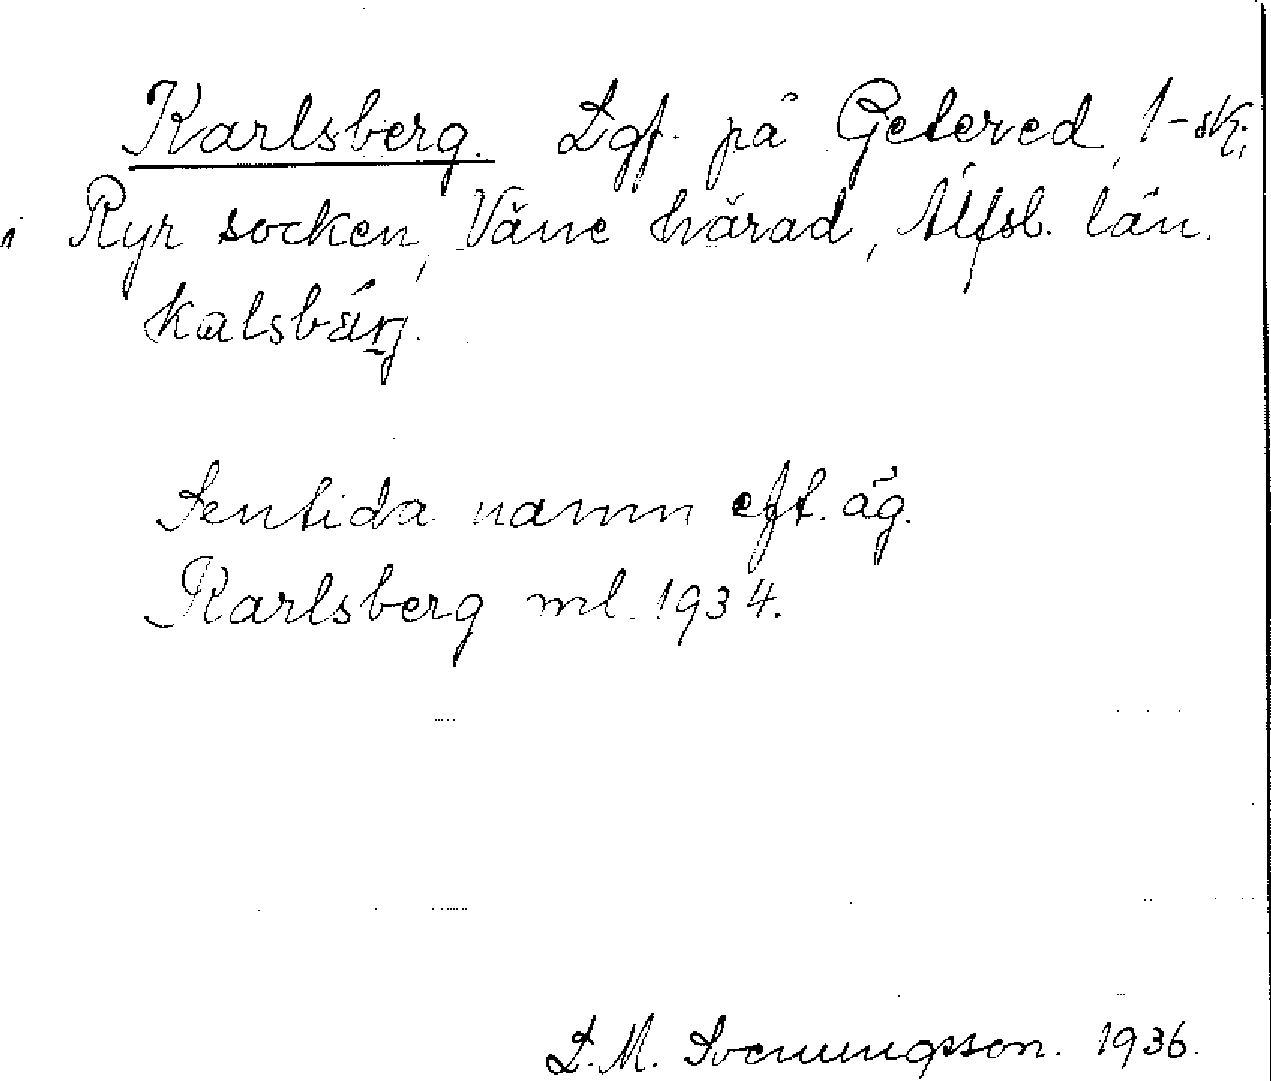 Karlsberg. Lgf. på Getered, 1-sk;
i Ryr socken, Väne härad, Älfsb. län.
kalsbärj.
Sentida namn eft. äg.
Karlsberg ml. 1934.
L. M. Svenungsson. 1936.